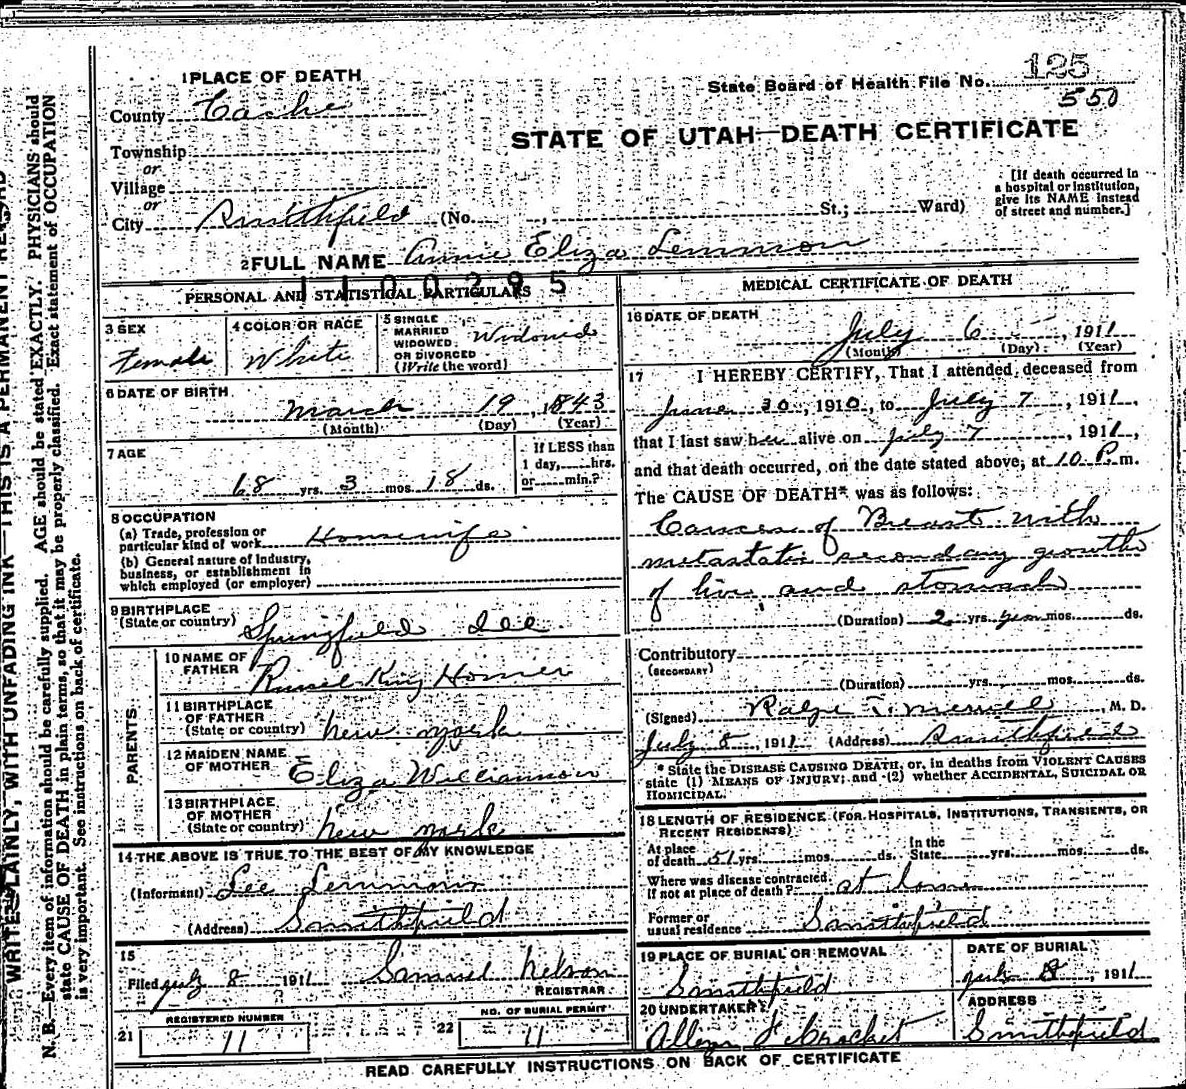 1 PLACE OF DEATH
State Board of Health File No. 125
550
County Cache
STATE OF UTAH—DEATH CERTIFICATE
Township
or
Village
or
City Smithfield (No. , St.; Ward)
[If death occurred in
a hospital or institution,
give its NAME instead
of street and number.]
2 FULL NAME Annie Eliza Lemmon
1100295
PERSONAL AND STATISTICAL PARTICULARS
3 SEX
Female
4 COLOR OR RACE
White
5 SINGLE
MARRIED
WIDOWED
OR DIVORCED
(Write the word)
Widowed
6 DATE OF BIRTH
March 19, 1843
(Month) (Day) (Year)
7 AGE
68 yrs. 3 mos. 18 ds.
If LESS than
1 day, hrs.
or min.?
8 OCCUPATION
(a) Trade, profession or
particular kind of work Housewife
(b) General nature of industry,
business, or establishment in
which employed (or employer)
9 BIRTHPLACE
(State or country) Springfield Ill
PARENTS
10 NAME OF
FATHER Russel King Homer
11 BIRTHPLACE
OF FATHER
(State or country) New York
12 MAIDEN NAME
OF MOTHER Eliza Williamson
13 BIRTHPLACE
OF MOTHER
(State or country) New York
14 THE ABOVE IS TRUE TO THE BEST OF MY KNOWLEDGE
(Informant) Lee Lemmon
(Address) Smithfield
15
Filed July 8 1911 Samuel Nelson
REGISTRAR
21 REGISTERED NUMBER
11
22 NO. OF BURIAL PERMIT
11
MEDICAL CERTIFICATE OF DEATH
16 DATE OF DEATH
July 6, 1911
(Month) (Day) (Year)
17 I HEREBY CERTIFY, That I attended deceased from
June 30, 1910, to July 7, 1911,
that I last saw her alive on July 7, 1911,
and that death occurred, on the date stated above, at 10 P. m.
The CAUSE OF DEATH* was as follows:
Cancer of Breast with
metastatic secondary growths
of liver and stomach
(Duration) 2 yrs. mos. ds.
Contributory
(SECONDARY)
(Duration) yrs. mos. ds.
(Signed) Ralph T. Merrill, M. D.
July 8, 1911 (Address) Smithfield
* State the DISEASE CAUSING DEATH, or, in deaths from VIOLENT CAUSES
state (1) MEANS OF INJURY; and (2) whether ACCIDENTAL, SUICIDAL OR
HOMICIDAL.
18 LENGTH OF RESIDENCE (FOR HOSPITALS, INSTITUTIONS, TRANSIENTS, OR
RECENT RESIDENTS)
At place
of death 51 yrs. mos. ds.
In the
State yrs. mos. ds.
Where was disease contracted,
if not at place of death? at home
Former or
usual residence Smithfield
19 PLACE OF BURIAL OR REMOVAL
Smithfield
DATE OF BURIAL
July 8, 1911
20 UNDERTAKER
ADDRESS
Smithfield
READ CAREFULLY INSTRUCTIONS ON BACK OF CERTIFICATE
WRITE PLAINLY, WITH UNFADING INK—THIS IS A PERMANENT
N. B.—Every item of information should be carefully supplied. AGE should be stated EXACTLY. PHYSICIANS should
state CAUSE OF DEATH in plain terms, so that it may be properly classified. Exact statement of OCCUPATION
is very important. See instructions on back of certificate.